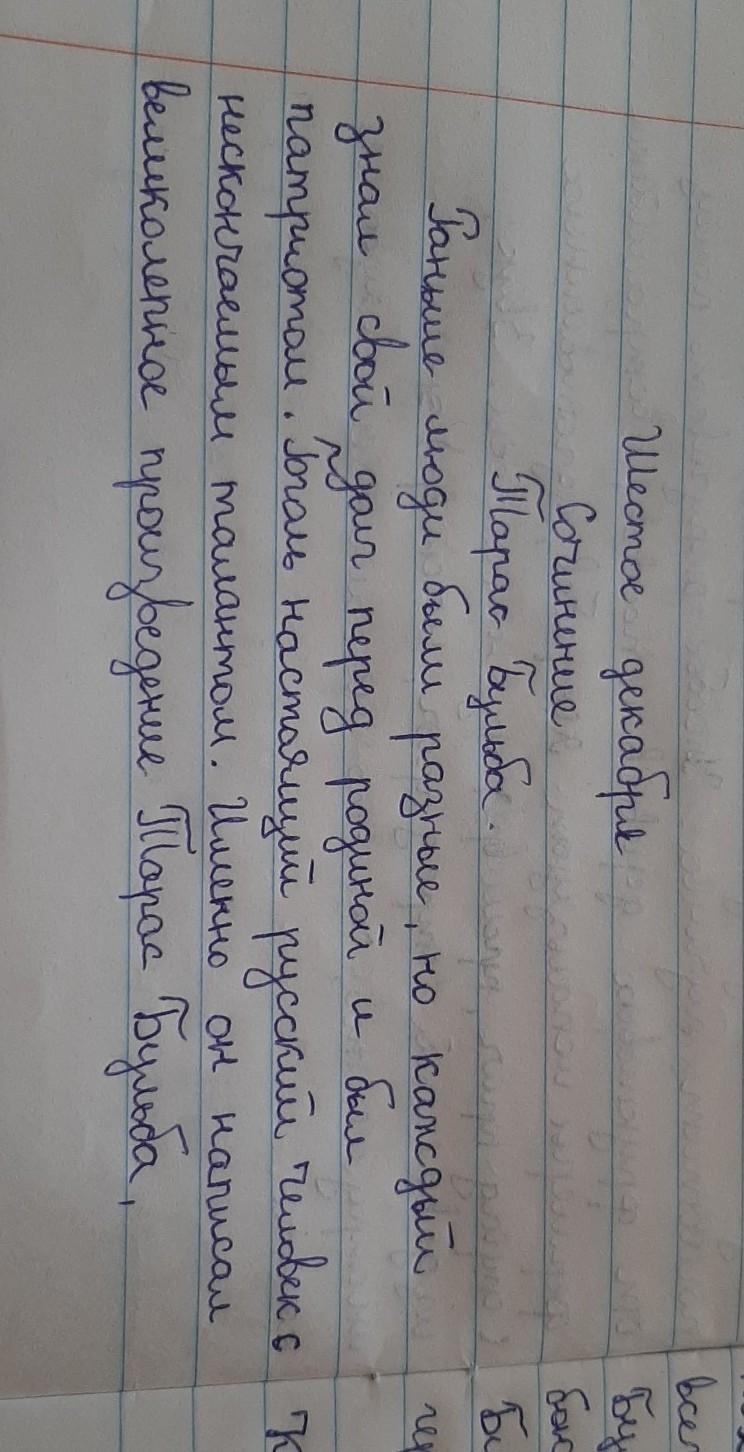 Шестое декабря
Сочинение
Тарас Бульба.
Раньше люди были разные, но каждый
знал свой долг перед родиной и был
патриотом. Гоголь настоящий русский человек с
нескончаемым талантом. Именно он написал
великолепное произведение Тарас Бульба,